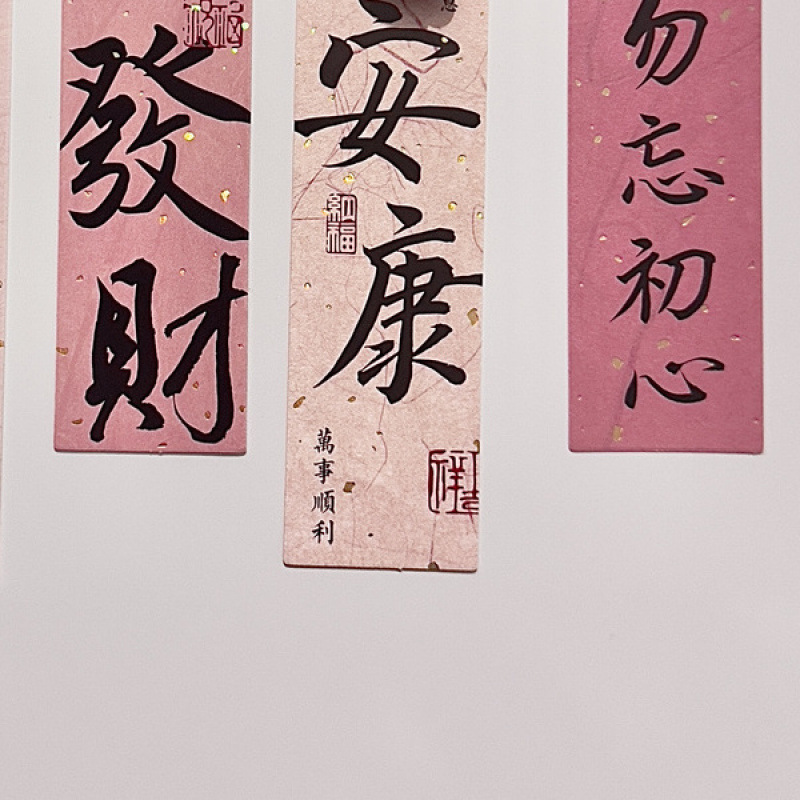 發財
安康
納福
萬事順利
勿忘初心